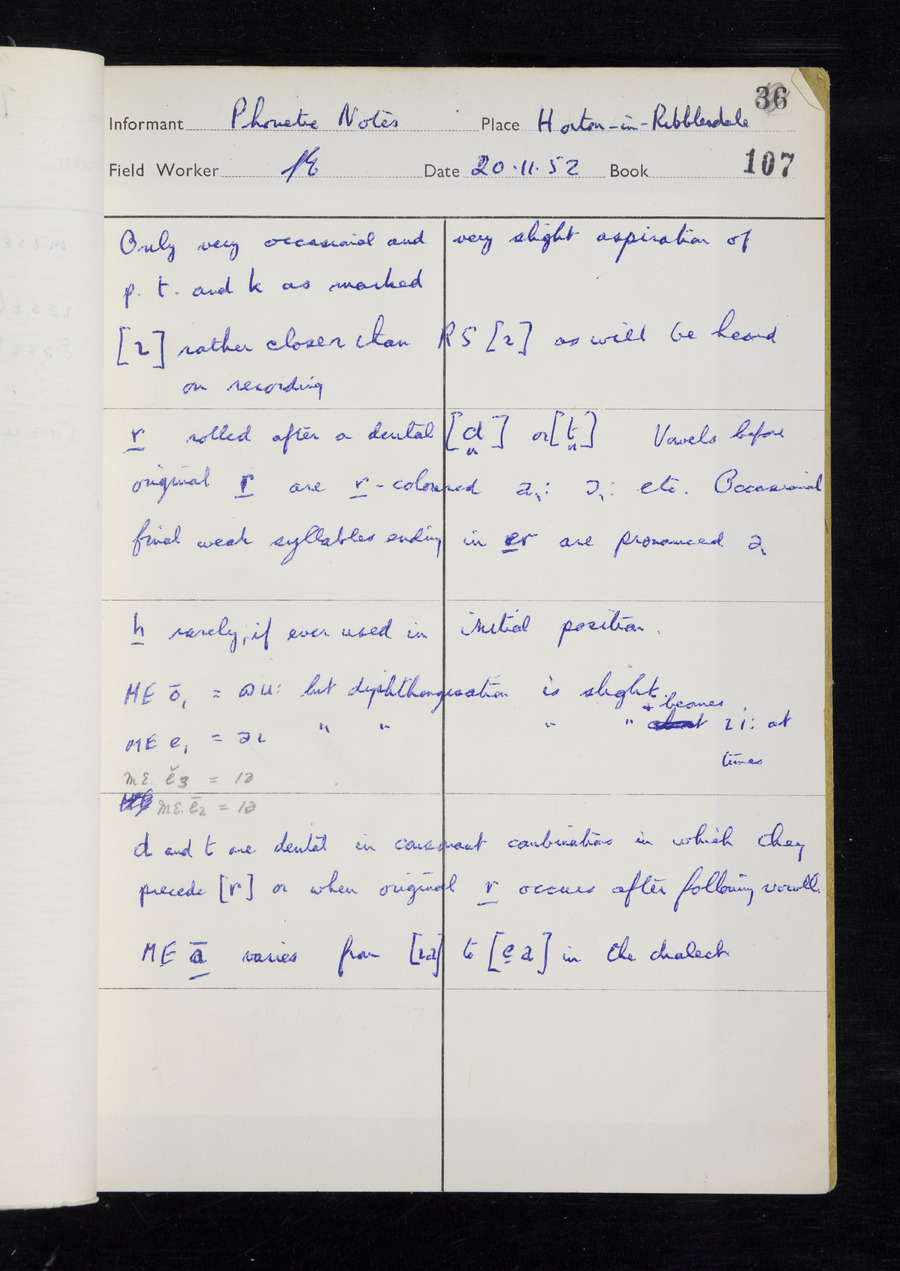 36
Informant Phonetic Notes Place Horton-in-Ribblesdale
Field Worker Date 20.11.52 Book 107
Only very occasional and very slight aspiration of
p. t. and k as marked
[ɩ] rather closer than RS [ɩ] as will be heard
on recording
r rolled after a dental [d̪] or [t̪] Vowels before
original r are r-coloured əɻ: ɔɻ: etc. Occasional
final weak syllables ending in er are pronounced əɻ
h rarely, if ever used in initial position.
ME ō₁ = ʊu: but diphthongisation is slight.
+ becomes
ME e₁ = əɩ " " " " ɩi: at
times
M.E. ĕ₃ = ɩə
M.E. ē₂ = ɩə
d and t are dental in consonant combinations in which they
precede [r] or when original r occurs after following vowell.
ME ā varies from [ɩə] to [ẹə] in the dialect